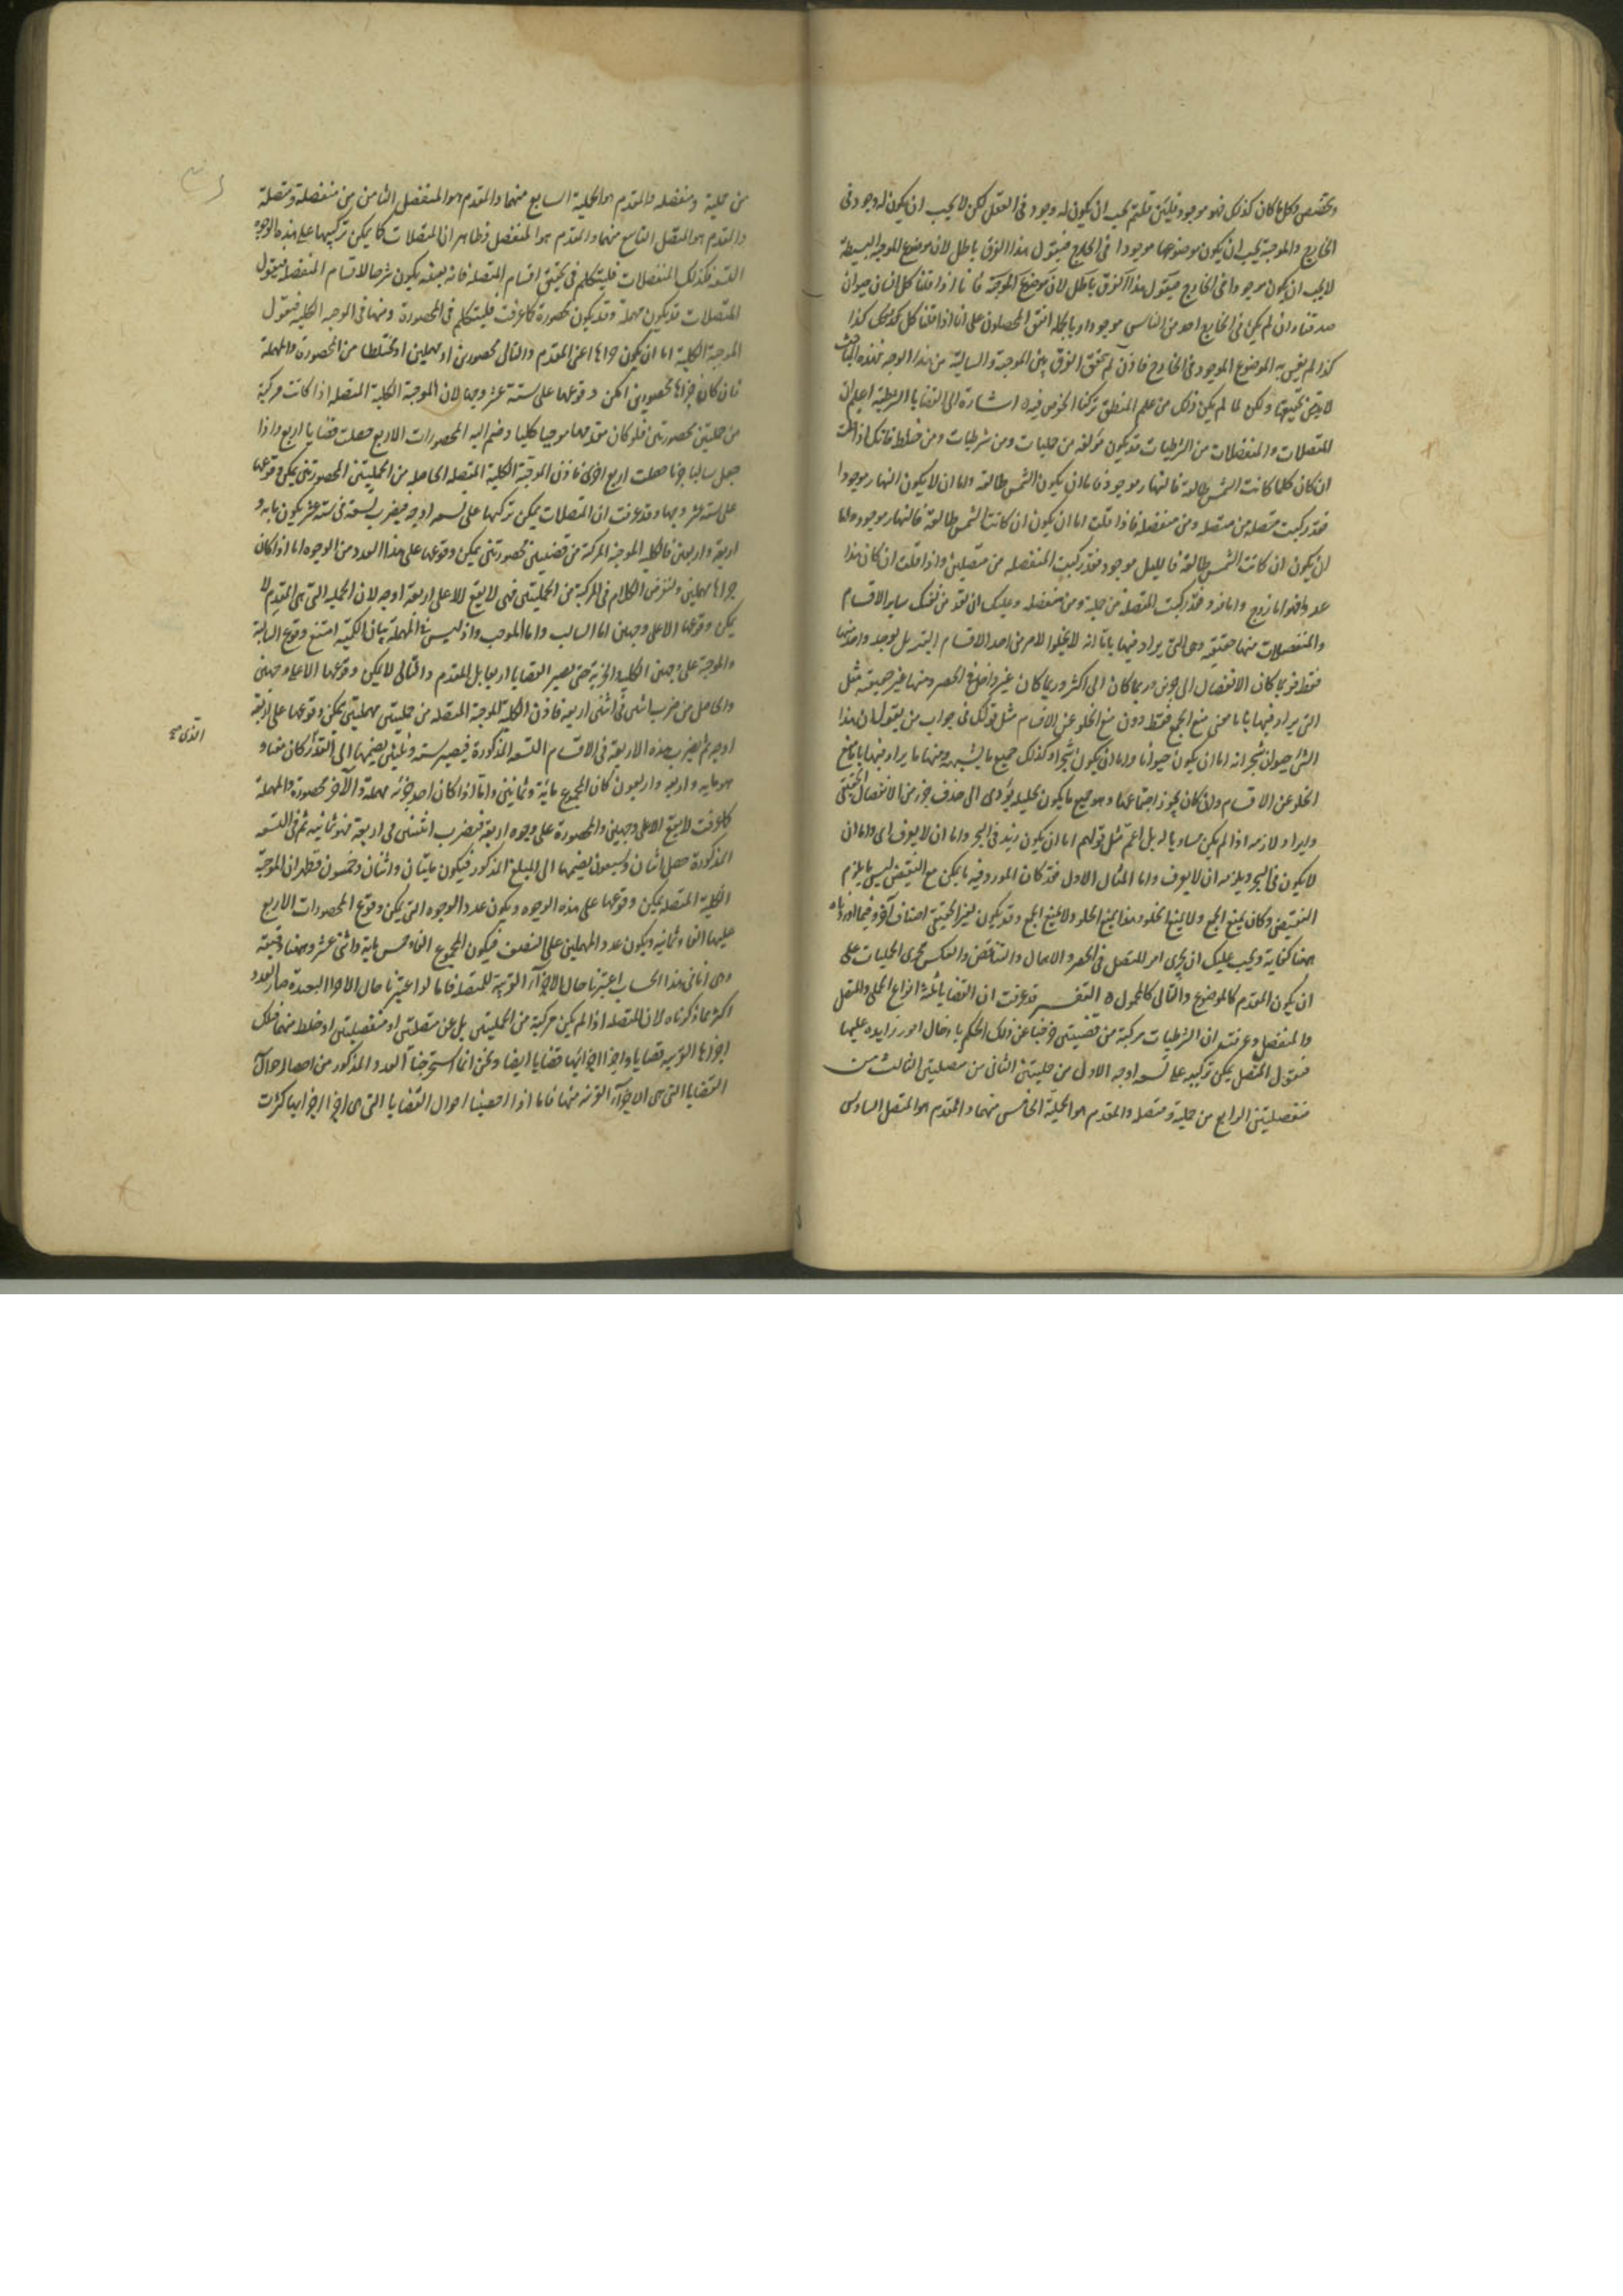 وتخصص وكل ما كان كذلك فهو موجود فلئن قلتم يجب ان يكون له وجود فى العقل لكن لا يجب ان يكون له وجود فى
الخارج والموجبة يجب ان يكون موضوعها موجودا فى الخارج فنقول هذا الفرق باطل لان موضوع الموجبة البسيطة
لا يجب ان يكون موجودا فى الخارج فنقول هذا الفرق باطل لان موضوع الموجبة فانا اذا قلنا كل انسان حيوان
صدقنا وان لم يكن فى الخارج احد من الناس موجودا وبالجملة اتفق المحصلون على انا اذا قلنا كل كذا كذا
كذا لم يعن به الموضوع الموجود فى الخارج فاذن لم يحقق الفرق بين الموجبة والسالبة من هذا الوجه فهذه المباحث
لا بد من تحقيقها ولكن لما لم يكن ذلك من علم المنطق تركنا الخوض فيه اشارة الى القضايا الشرطية اعلم ان
المتصلات والمنفصلات من الشرطيات قد يكون مؤلفة من حمليات ومن شرطيات ومن خلط فانك اذا قلت
ان كان كلما كانت الشمس طالعة فالنهار موجود فاما ان يكون الشمس طالعة واما ان لا يكون النهار موجودا
فقد ركبت متصلة من متصلة ومن منفصلة فاذا قلت اما ان يكون ان كانت الشمس طالعة فالنهار موجود واما
ان يكون ان كانت الشمس طالعة فالليل موجود فقد ركبت المنفصلة من متصلين واذا قلت ان كان هذا
عددا فهو اما زوج واما فرد فقد ركبت المتصلة من حملية ومن منفصلة وعليك ان تعد من نفسك ساير الاقسام
والمنفصلات منها حقيقية وهى التى يراد فيها باما انه لا يخلوا الامر من احد الاقسام البتة بل يوجد واحد منها
فقط فربما كان الانفصال الى جزئين وربما كان الى اكثر وربما كان غير داخل فى الحصر ومنها غير حقيقية مثل
التى يراد فيها باما معنى منع الجمع فقط دون منع الخلو عن الاقسام مثل قولك فى جواب من يقول ان هذا
الشئ حيوان شجر انه اما ان يكون حيوانا واما ان يكون شجرا وكذلك جميع ما يشبهه ومنها ما يراد فيها باما منع
الخلو عن الاقسام وان كان يجوز اجتماعهما وهو جميع ما يكون تحليله يؤدى الى حذف جزء من الانفصال الحقيقى
وايراد لازمه اذا لم يكن مساويا له بل اعم مثل قولهم اما ان يكون زيد فى البحر واما ان لا يغرق اى واما ان
لا يكون فى البحر ويلزمه ان لا يغرق واما المثال الاول فقد كان المورد فيه ما يمكن مع النقيض ليس ما يلزم
النقيض وكان يمنع الجمع ولا يمنع الخلو وهذا يمنع الخلو ولا يمنع الجمع وقد يكون لغير الحقيقى اصناف اخر وفيما اوردناه
ههنا كفاية ويجب عليك ان يجرى امر المتصل فى الحصر والاهمال والتناقض والعكس مجرى الحمليات على
ان يكون المقدم كالموضوع والتالى كالمحمول التفسير قد عرفت ان القضايا ثلثة انواع الحملى والمتصل
والمنفصل وعرفت ان الشرطيات مركبة من قضيتين خرجتا عن ذلك الحكم بادخال امور زايدة عليهما
فنقول المتصل يمكن تركيبه على تسعة اوجه الاول من حمليتين الثانى من متصلتين الثالث من
منفصلتين الرابع من حملية ومتصلة والمقدم هو الحملية الخامس منهما والمقدم هو المتصل السادس
من حملية ومنفصلة والمقدم هو الحملية السابع منهما والمقدم هو المنفصل الثامن من منفصلة ومتصلة
والمقدم هو المتصل التاسع منهما والمقدم هو المنفصل فظاهر ان المتصلات كما يمكن تركيبها على هذه الوجوه
التسعة فكذلك المنفصلات فليتكلم فى تحقيق اقسام المتصلة فانه بعينه يكون شرحا لاقسام المنفصلة فنقول
المتصلات قد يكون مهملة وقد يكون محصورة كما عرفت فليتكلم فى المحصورة ومنها فى الموجبة الكلية فنقول
الموجبة الكلية اما ان يكون جزءاها اعنى المقدم والتالى محصورين او مهملين او مختلطا من المحصورة والمهملة
فان كان جزءاها محصورين امكن وقوعها على ستة عشر وجها لان الموجبة الكلية المتصلة اذا كانت مركبة
من حمليتين محصورتين فلو كان مقدمها موجبا كليا وضم اليه المحصورات الاربع حصلت قضايا اربع واذا
جعل سالبا جزئيا حصلت اربع اخرى فاذن الموجبة الكلية المتصلة الحاصلة من الحمليتين المحصورتين يمكن وقوعها
على ستة عشر وجها وقد عرفت ان المتصلات يمكن تركيبها على تسعة اوجه فيضرب تسعة فى ستة عشر يكون مايه و
اربعة واربعين فالكلية الموجبة المركبة من قضيتين محصورتين يمكن وقوعها على هذا العدد من الوجوه اما اذا كان
جزءاها مهملين ولنفرض الكلام فى المركبة من الحمليتين فهى لا يقع الا على اربعة اوجه لان الحملية التى هى المقدم لا
يمكن وقوعها الا على وجهين اما السالب واما الموجب واذ ليس فى المهملة بيان الكمية امتنع وقوع السالبة
والموجبة على وجهين الكلية والجزئية حتى يصير القضايا اربعا بل المقدم والتالى لا يمكن وقوعها الا على وجهين
والحاصل من ضرب اثنين فى اثنين اربعة فاذن الكلية الموجبة المتصلة من حمليتين مهملتين يمكن وقوعها على اربعة
اوجه ثم يضرب هذه الاربعة فى الاقسام التسعة المذكورة فيصير ستة وثلثين يضمها الى القدر كان معنا و
الذى صح
هو مايه واربعه واربعون كان المجموع مائة وثمانين واما اذا كان احد جزئيه مهملة والآخر محصورة والمهملة
كما عرفت لا يقع الا على وجهين والمحصورة على وجوه اربعة فيضرب اثنين فى اربعة فهو ثمانية ثم فى التسعة
المذكورة حصل اثنان وسبعون يضمها الى المبلغ المذكور فيكون مايتان واثنان وخمسون فظهر ان الموجبة
الكلية المتصلة يمكن وقوعها على هذه الوجوه ويكون عدد الوجوه التى يمكن وقوع المحصورات الاربع
عليها الفا وثمانية ويكون عدد المهملتين على النصف فيكون المجموع الفا وخمس ماية واثنى عشر وههنا دقيقة
وهى انا فى هذا الحساب اعتبرنا حال الاجزاء القريبة للمتصلة فاما لو اعتبرنا حال الاجزاء البعيدة صار العدد
اكثر مما ذكرناه لان المتصلة اذا لم يكن مركبة من الحمليتين بل عن متصلتين او منفصلتين او خلط منهما فلك
اجزاءها القريبة قضايا واجزاء اجزائها قضايا ايضا ونحن انما استخرجنا العدد المذكور من احصاء احوال
القضايا التى هى الاجزاء القريبة منها فاما اذا احصينا احوال القضايا التى هى اجزاء اجزائها كثرت